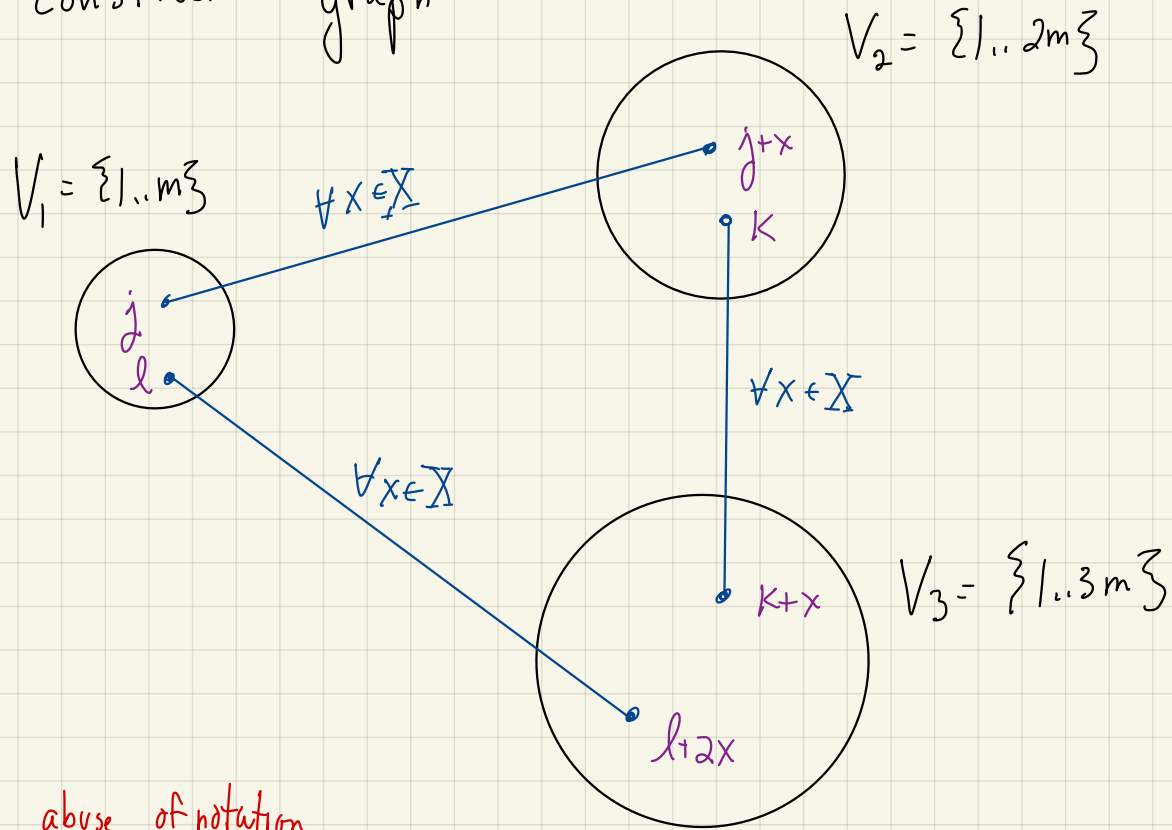 graph
V₂ = {1..2m}
V₁ = {1..m}
∀ x ∈ X
j+x
k
j
l
∀ x ∈ X
∀ x ∈ X
k+x
V₃ = {1..3m}
l+2x
abuse of notation